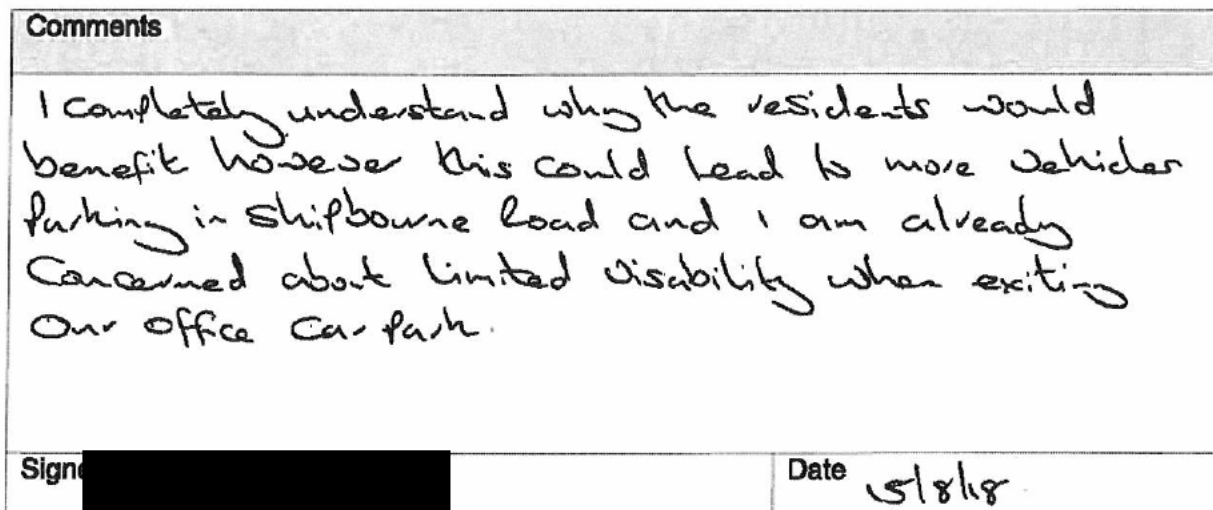 Comments
I completely understand why the residents would
benefit however this could lead to more vehicles
parking in Shipbourne Road and I am already
concerned about limited visability when exiting
our office car park.
Signe
Date 15/8/18